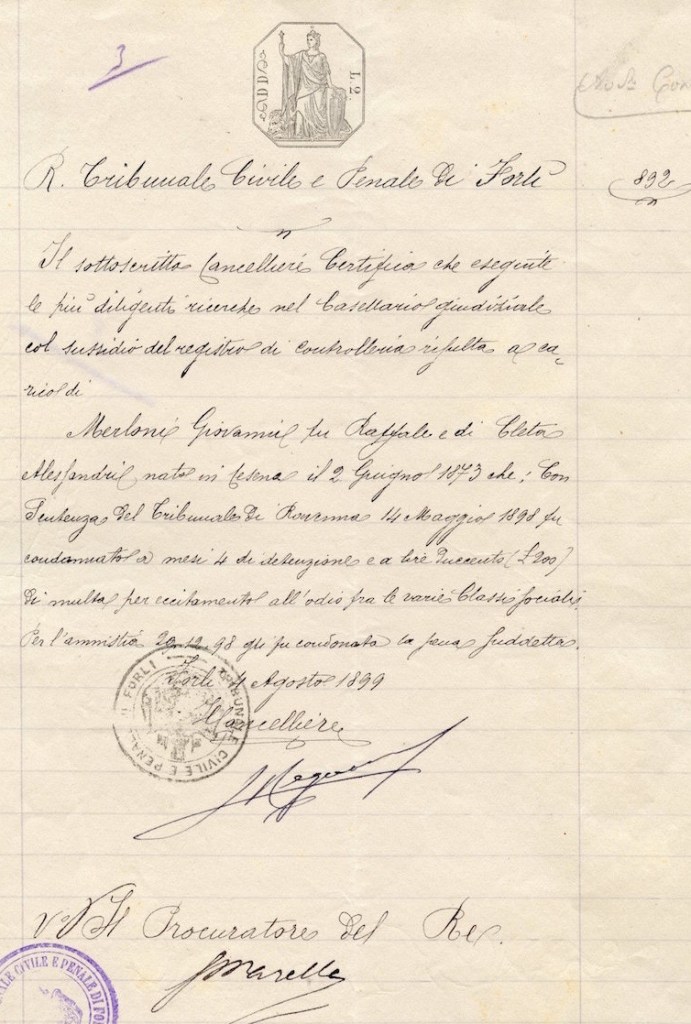 3
L. 2.
R. Tribunale Civile e Penale di Forlì
892
Il sottoscritto Cancelliere Certifica che eseguite
le più diligenti ricerche nel Casellario giudiziale
col sussidio del registro di controlleria risulta a ca-
rico di
Merloni Giovanni fu Raffaele e di Cleta
Alessandri nato in Cesena il 2 Giugno 1873 che: Con
Sentenza del Tribunale di Ravenna 14 Maggio 1898 fu
condannato a mesi 4 di detenzione e a lire Duecento (£200)
di multa per eccitamento all'odio fra le varie Classi sociali.
Per l'amnistia 29.12.98 gli fu condonata la pena suddetta.
Forlì 4 Agosto 1899
Il Cancelliere
TRIBUNALE CIVILE E PENALE DI FORLI
V° Il Procuratore del Re
CIVILE E PENALE DI FO